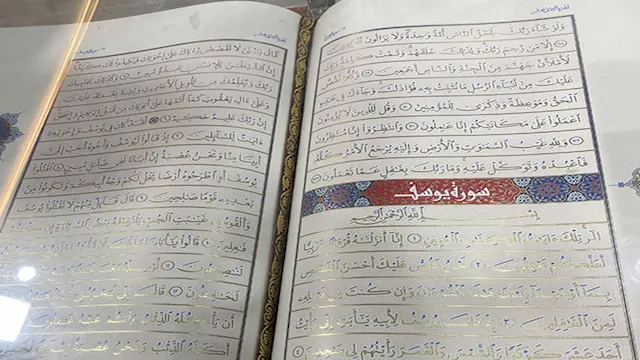 وَلَوْ شَآءَ رَبُّكَ لَجَعَلَ النَّاسَ أُمَّةً وَٰحِدَةً وَلَا يَزَالُونَ
إِلَّا مَن رَّحِمَ رَبُّكَ وَلِذَٰلِكَ خَلَقَهُمْ وَتَمَّتْ كَلِمَةُ رَبِّكَ
لَأَمْلَأَنَّ جَهَنَّمَ مِنَ الْجِنَّةِ وَالنَّاسِ أَجْمَعِينَ ۝ وَكُلًّا نَّقُصُّ
عَلَيْكَ مِنْ أَنۢبَآءِ الرُّسُلِ مَا نُثَبِّتُ بِهِ فُؤَادَكَ وَجَآءَكَ فِي هَٰذِهِ
الْحَقُّ وَمَوْعِظَةٌ وَذِكْرَىٰ لِلْمُؤْمِنِينَ ۝ وَقُل لِّلَّذِينَ لَا يُؤْمِنُونَ
اعْمَلُوا عَلَىٰ مَكَانَتِكُمْ إِنَّا عَٰمِلُونَ ۝ وَانتَظِرُوٓا إِنَّا مُنتَظِرُونَ
۝ وَلِلَّهِ غَيْبُ السَّمَٰوَٰتِ وَالْأَرْضِ وَإِلَيْهِ يُرْجَعُ الْأَمْرُ كُلُّهُ
فَاعْبُدْهُ وَتَوَكَّلْ عَلَيْهِ وَمَا رَبُّكَ بِغَٰفِلٍ عَمَّا تَعْمَلُونَ ۝
سورة يوسف
بسم الله الرحمن الرحيم
الٓر تِلْكَ ءَايَٰتُ الْكِتَٰبِ الْمُبِينِ ۝ إِنَّآ أَنزَلْنَٰهُ قُرْءَٰنًا عَرَبِيًّا
لَّعَلَّكُمْ تَعْقِلُونَ ۝ نَحْنُ نَقُصُّ عَلَيْكَ أَحْسَنَ الْقَصَصِ
بِمَآ أَوْحَيْنَآ إِلَيْكَ هَٰذَا الْقُرْءَانَ وَإِن كُنتَ مِن قَبْلِهِ
لَمِنَ الْغَٰفِلِينَ ۝ إِذْ قَالَ يُوسُفُ لِأَبِيهِ يَٰٓأَبَتِ إِنِّي رَأَيْتُ
أَحَدَ عَشَرَ كَوْكَبًا وَالشَّمْسَ وَالْقَمَرَ رَأَيْتُهُمْ لِي سَٰجِدِينَ ۝
قَالَ يَٰبُنَيَّ لَا تَقْصُصْ رُءْيَاكَ عَلَىٰٓ إِخْوَتِكَ فَيَكِيدُوا لَكَ كَيْدًا
إِنَّ الشَّيْطَٰنَ لِلْإِنسَٰنِ عَدُوٌّ مُّبِينٌ ۝ وَكَذَٰلِكَ يَجْتَبِيكَ
رَبُّكَ وَيُعَلِّمُكَ مِن تَأْوِيلِ الْأَحَادِيثِ وَيُتِمُّ نِعْمَتَهُ عَلَيْكَ
وَعَلَىٰٓ ءَالِ يَعْقُوبَ كَمَآ أَتَمَّهَا عَلَىٰٓ أَبَوَيْكَ مِن قَبْلُ إِبْرَٰهِيمَ وَإِسْحَٰقَ
إِنَّ رَبَّكَ عَلِيمٌ حَكِيمٌ ۝ لَّقَدْ كَانَ فِي يُوسُفَ وَإِخْوَتِهِ
ءَايَٰتٌ لِّلسَّآئِلِينَ ۝ إِذْ قَالُوا لَيُوسُفُ وَأَخُوهُ أَحَبُّ إِلَىٰٓ
أَبِينَا مِنَّا وَنَحْنُ عُصْبَةٌ إِنَّ أَبَانَا لَفِي ضَلَٰلٍ مُّبِينٍ ۝ اقْتُلُوا
يُوسُفَ أَوِ اطْرَحُوهُ أَرْضًا يَخْلُ لَكُمْ وَجْهُ أَبِيكُمْ وَتَكُونُوا مِن
بَعْدِهِ قَوْمًا صَٰلِحِينَ ۝ قَالَ قَآئِلٌ مِّنْهُمْ لَا تَقْتُلُوا يُوسُفَ
وَأَلْقُوهُ فِي غَيَٰبَتِ الْجُبِّ يَلْتَقِطْهُ بَعْضُ
فَٰعِلِينَ ۝ قَالُوا يَٰٓأَبَانَا
لَنَٰصِحُونَ ۝ أَرْسِلْهُ مَعَنَا غَدًا
لَحَٰفِظُونَ ۝ قَالَ إِنِّي لَيَحْزُنُنِي
أَن يَأْكُلَهُ الذِّئْبُ
أَكَلَهُ الذِّئْبُ وَنَحْنُ عُصْبَةٌ